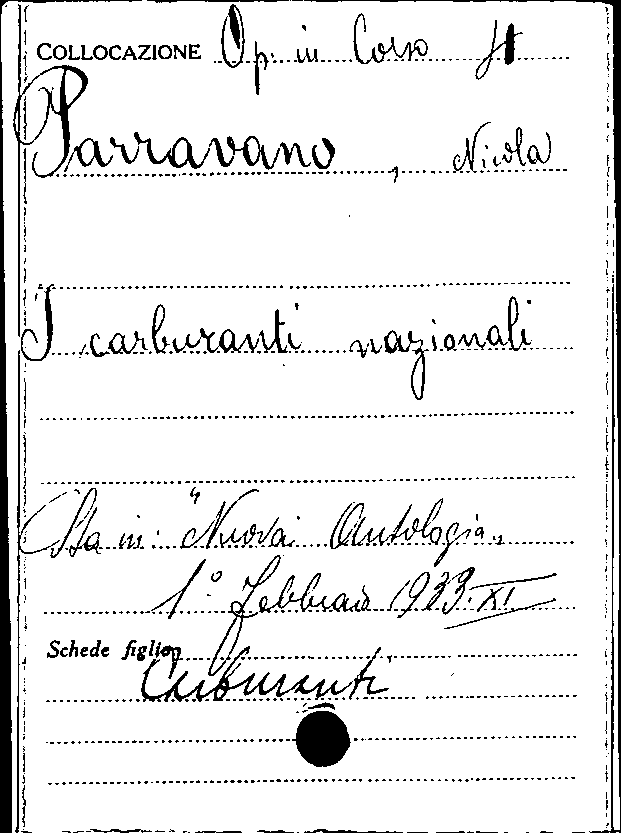 COLLOCAZIONE Op. in Corso
Parravano, Nicola
I carburanti nazionali
Sta in: "Nuova Antologia"
1° Febbraio 1933-XI
Schede figlie
Carburanti